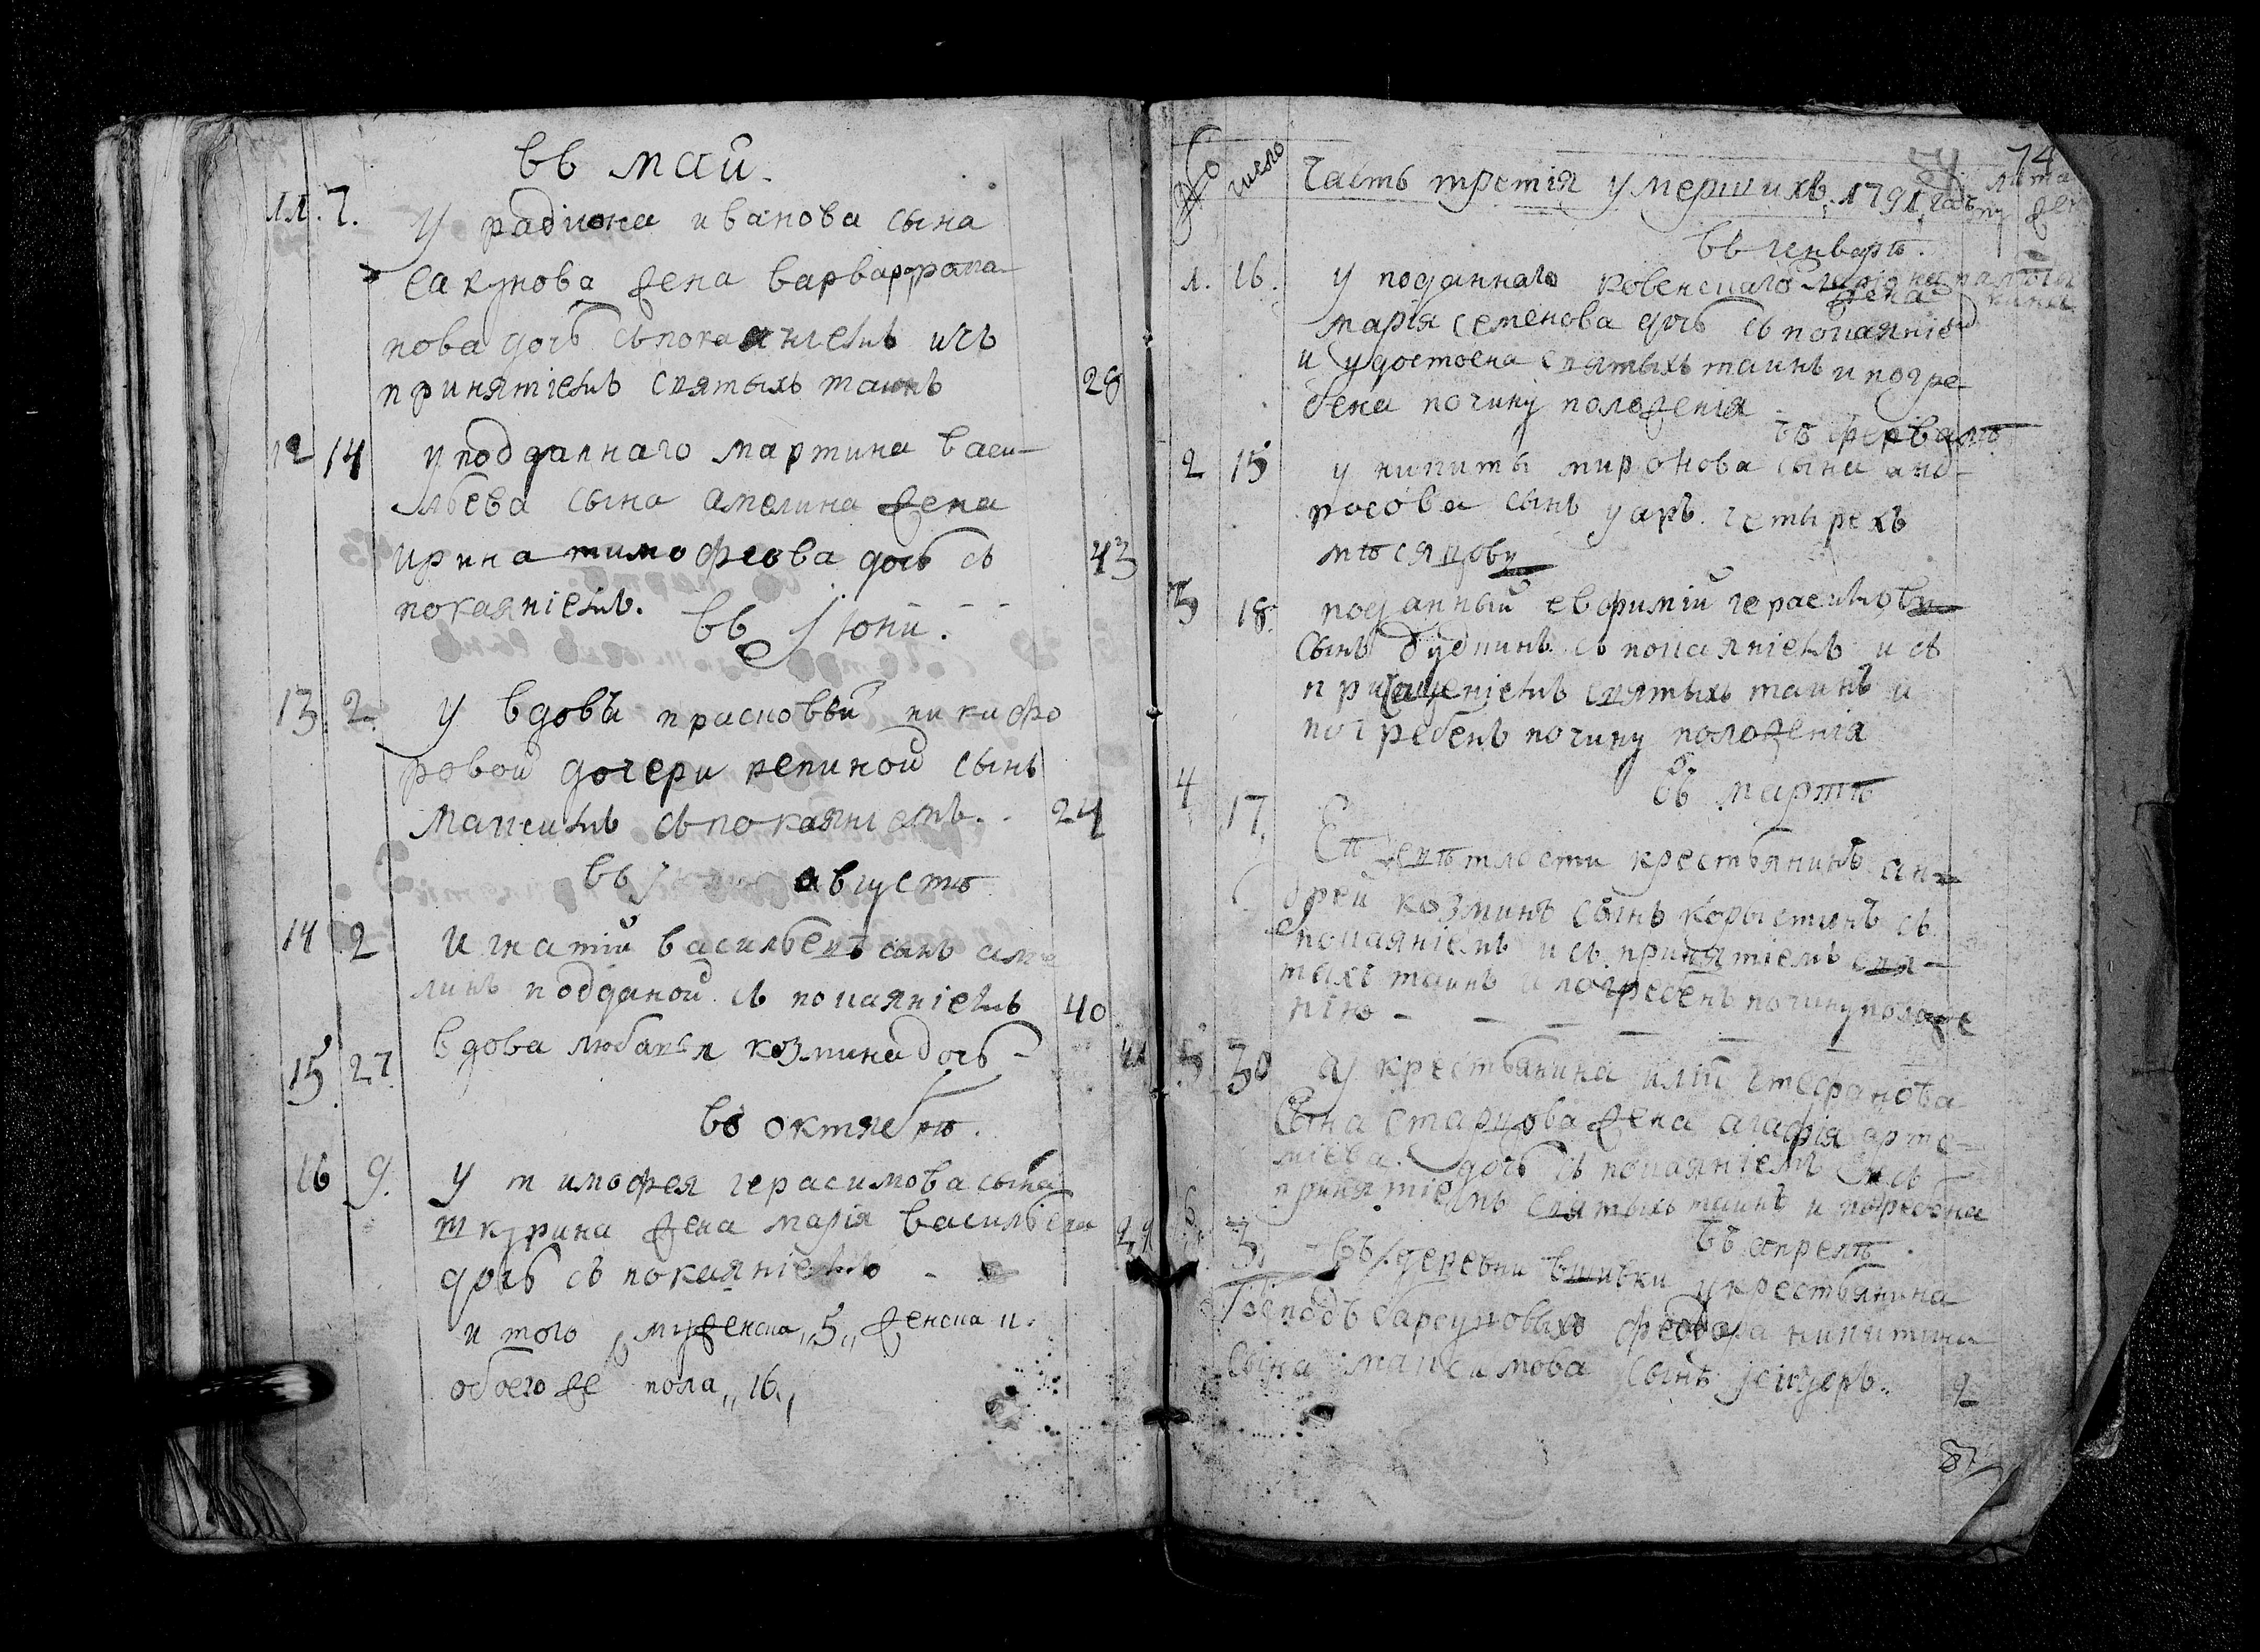 въ маи.
11. 7. У радиона иванова сына
сакунова жена варвар
пова дочь съ покаяниемъ и съ
принятиемъ святыхъ таинъ 28
12 14 у подданнаго мартина васи-
льева сына амелина жена
ирина тимофеева дочь съ 43
покаяниемъ. въ Iюни.
13. 2. У вдовы прасковьи никифо
ровой дочери репиной сынъ
максимъ съ покаяниемъ. 24
въ августѣ
14 2 Игнатий васильевъ сынъ аме
линъ подданой съ покаяниемъ 40
15. 27. вдова козмина дочь -
въ октябрѣ.
16 9. У тимофея герасимова сына
жена мария васильева
дочь съ покаяниемъ - 29
итого мужеска „5„ женска 11.
обоего же пола „16„
74
№ число Часть третiя умершихъ 1791 года лѣта
въ генварѣ.
1. 16. У подданнаго жена
марiя семенова дочь съ покаянiе
и удостоена святыхъ таинъ и погре-
бена по чину положенiя
въ февралѣ
2 15 у никиты миронова сына анд-
росова сынъ четырехъ
мѣсяцовъ
3 18. подданный евфимий герасимовъ
сынъ съ покаянiемъ и съ
причащенiемъ святыхъ таинъ и
погребенъ по чину положенiя
въ мартѣ
4 17. крестьянинъ ан-
дрей козминъ сынъ съ
покаянiемъ и съ принятiемъ свя-
тыхъ таинъ и погребенъ по чину положе
нiю -
5 30 У крестьянина стефанова
сына старцова жена агафiя арте-
мiева дочь съ покаянiемъ и съ
принятiемъ святыхъ таинъ и погребена
въ апрелѣ.
6 3. въ деревни у крестьянина
Господъ барсуковыхъ феодора никитина
сына максимова сынъ 2
87